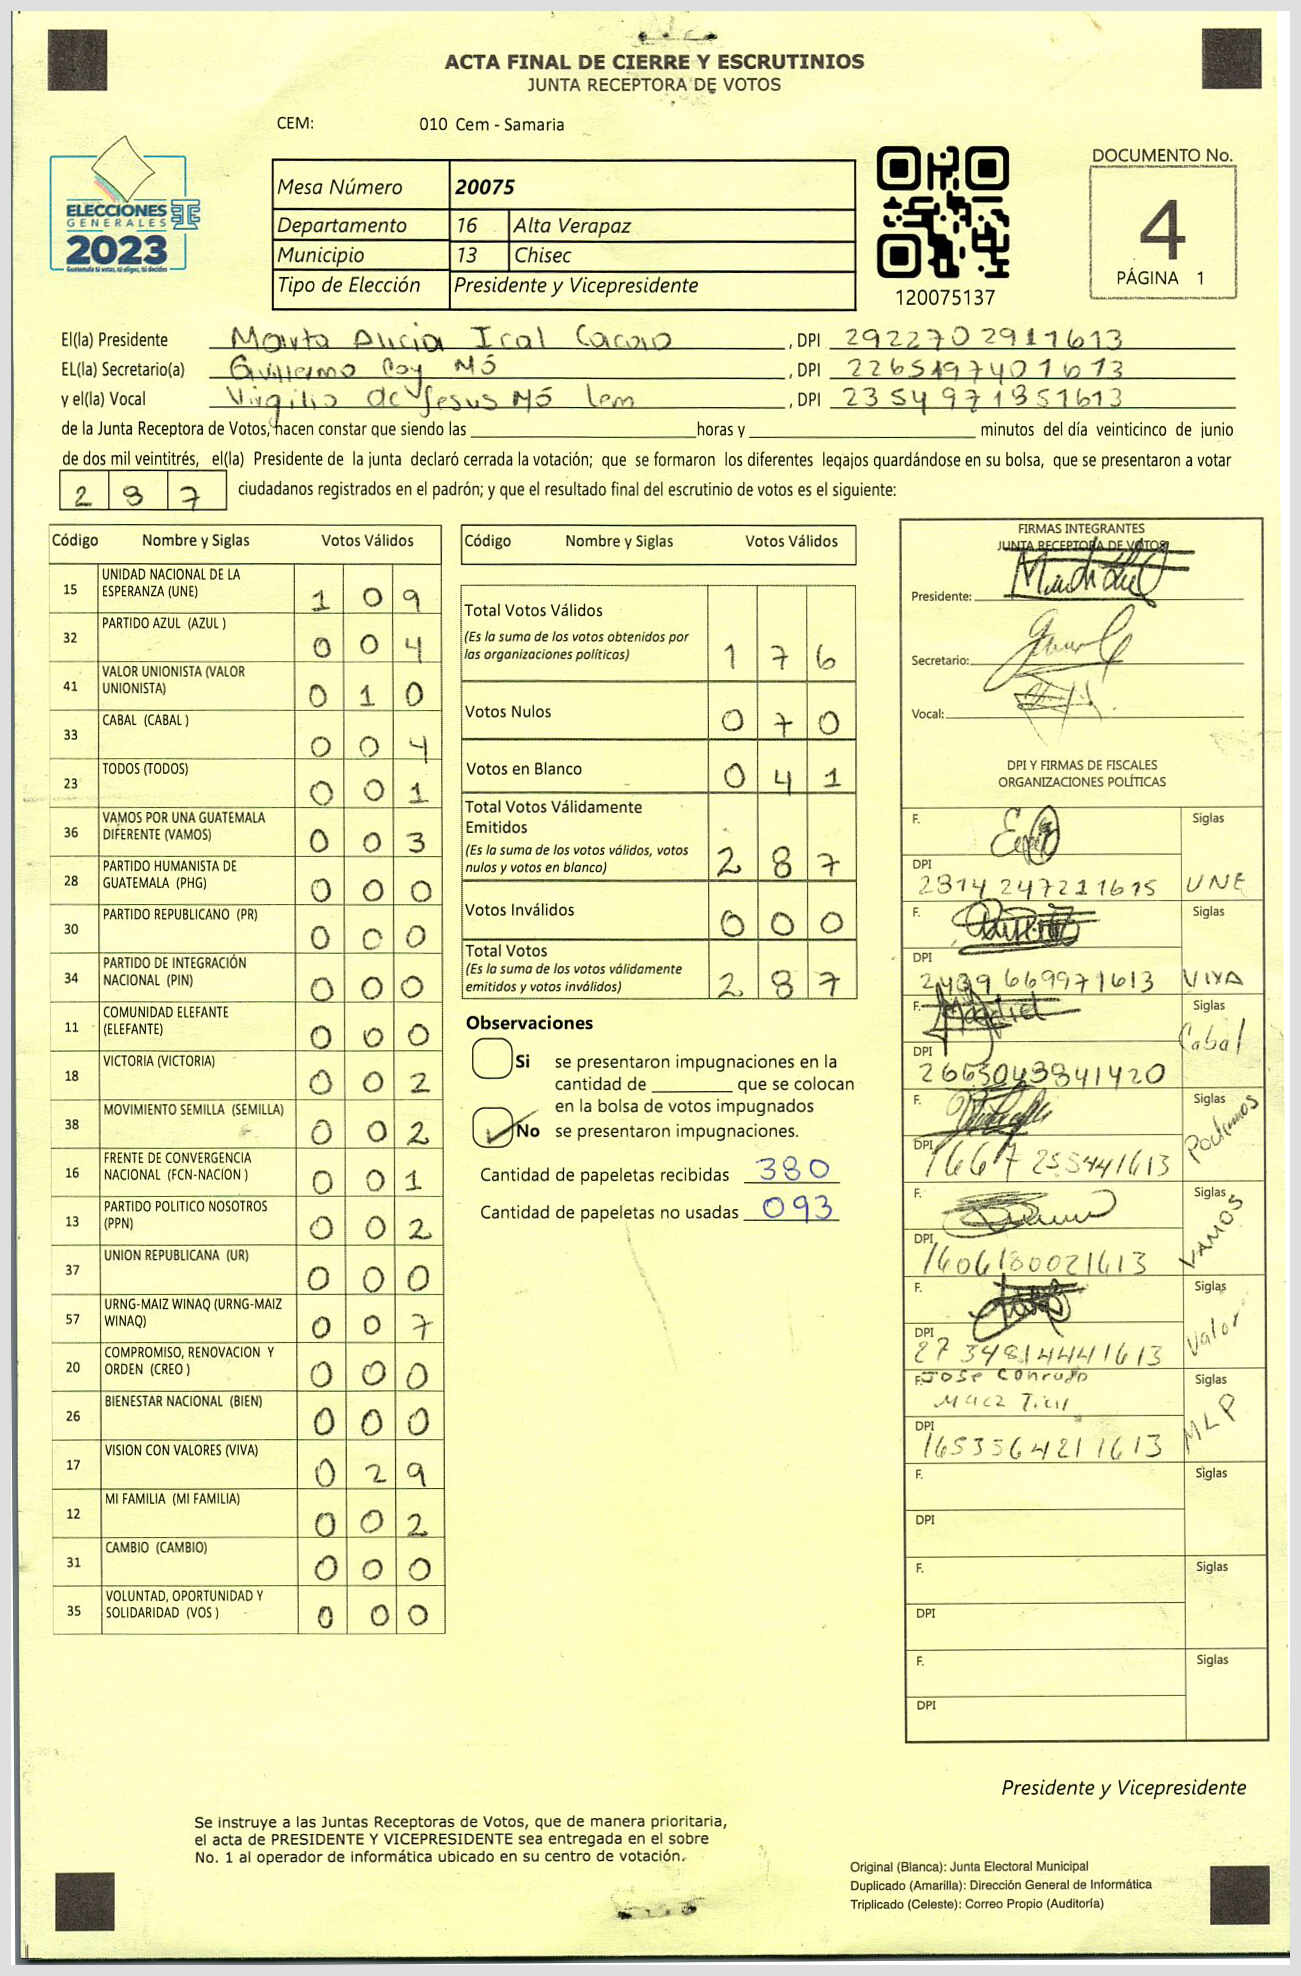 ACTA FINAL DE CIERRE Y ESCRUTINIOS
JUNTA RECEPTORA DE VOTOS
CEM: 010 Cem - Samaria
ELECCIONES
GENERALES
2023
Guatemala tú votas, tú eliges, tú decides
Mesa Número 20075
Departamento 16 Alta Verapaz
Municipio 13 Chisec
Tipo de Elección Presidente y Vicepresidente
120075137
DOCUMENTO No.
4
PÁGINA 1
El(la) Presidente Marta Alicia Ical Cacao, DPI 2922702911613
EL(la) Secretario(a) Guillermo Coy Mó, DPI 2265197401613
y el(la) Vocal Virgilio de Jesus Mó Lem, DPI 2354971351613
de la Junta Receptora de Votos, hacen constar que siendo las horas y minutos del día veinticinco de junio
de dos mil veintitrés, el(la) Presidente de la junta declaró cerrada la votación; que se formaron los diferentes legajos guardándose en su bolsa, que se presentaron a votar
287 ciudadanos registrados en el padrón; y que el resultado final del escrutinio de votos es el siguiente:
Código Nombre y Siglas Votos Válidos
15 UNIDAD NACIONAL DE LA ESPERANZA (UNE) 1 0 9
32 PARTIDO AZUL (AZUL ) 0 0 4
41 VALOR UNIONISTA (VALOR UNIONISTA) 0 1 0
33 CABAL (CABAL ) 0 0 4
23 TODOS (TODOS) 0 0 1
36 VAMOS POR UNA GUATEMALA DIFERENTE (VAMOS) 0 0 3
28 PARTIDO HUMANISTA DE GUATEMALA (PHG) 0 0 0
30 PARTIDO REPUBLICANO (PR) 0 0 0
34 PARTIDO DE INTEGRACIÓN NACIONAL (PIN) 0 0 0
11 COMUNIDAD ELEFANTE (ELEFANTE) 0 0 0
18 VICTORIA (VICTORIA) 0 0 2
38 MOVIMIENTO SEMILLA (SEMILLA) 0 0 2
16 FRENTE DE CONVERGENCIA NACIONAL (FCN-NACION ) 0 0 1
13 PARTIDO POLITICO NOSOTROS (PPN) 0 0 2
37 UNION REPUBLICANA (UR) 0 0 0
57 URNG-MAIZ WINAQ (URNG-MAIZ WINAQ) 0 0 7
20 COMPROMISO, RENOVACION Y ORDEN (CREO ) 0 0 0
26 BIENESTAR NACIONAL (BIEN) 0 0 0
17 VISION CON VALORES (VIVA) 0 2 9
12 MI FAMILIA (MI FAMILIA) 0 0 2
31 CAMBIO (CAMBIO) 0 0 0
35 VOLUNTAD, OPORTUNIDAD Y SOLIDARIDAD (VOS ) 0 0 0
Código Nombre y Siglas Votos Válidos
Total Votos Válidos
(Es la suma de los votos obtenidos por
las organizaciones políticas) 1 7 6
Votos Nulos 0 7 0
Votos en Blanco 0 4 1
Total Votos Válidamente
Emitidos
(Es la suma de los votos válidos, votos
nulos y votos en blanco) 2 8 7
Votos Inválidos 0 0 0
Total Votos
(Es la suma de los votos válidamente
emitidos y votos inválidos) 2 8 7
Observaciones
Si se presentaron impugnaciones en la
cantidad de que se colocan
en la bolsa de votos impugnados
No se presentaron impugnaciones.
Cantidad de papeletas recibidas 380
Cantidad de papeletas no usadas 093
FIRMAS INTEGRANTES
JUNTA RECEPTORA DE VOTOS
Presidente:
Secretario:
Vocal:
DPI Y FIRMAS DE FISCALES
ORGANIZACIONES POLÍTICAS
F. Siglas
DPI
2814247211615 UNE
F. Siglas
DPI
2439669971613 VIVA
F. Siglas
Cabal
DPI
2665043841420
F. Siglas
Podemos
DPI
1667255441613
F. Siglas
VAMOS
DPI
1606180021613
F. Siglas
Valor
DPI
2734814441613
F. Jose Conrado Siglas
MLP
DPI
1653564211613
F. Siglas
DPI
F. Siglas
DPI
F. Siglas
DPI
Presidente y Vicepresidente
Se instruye a las Juntas Receptoras de Votos, que de manera prioritaria,
el acta de PRESIDENTE Y VICEPRESIDENTE sea entregada en el sobre
No. 1 al operador de informática ubicado en su centro de votación.
Original (Blanca): Junta Electoral Municipal
Duplicado (Amarilla): Dirección General de Informática
Triplicado (Celeste): Correo Propio (Auditoría)